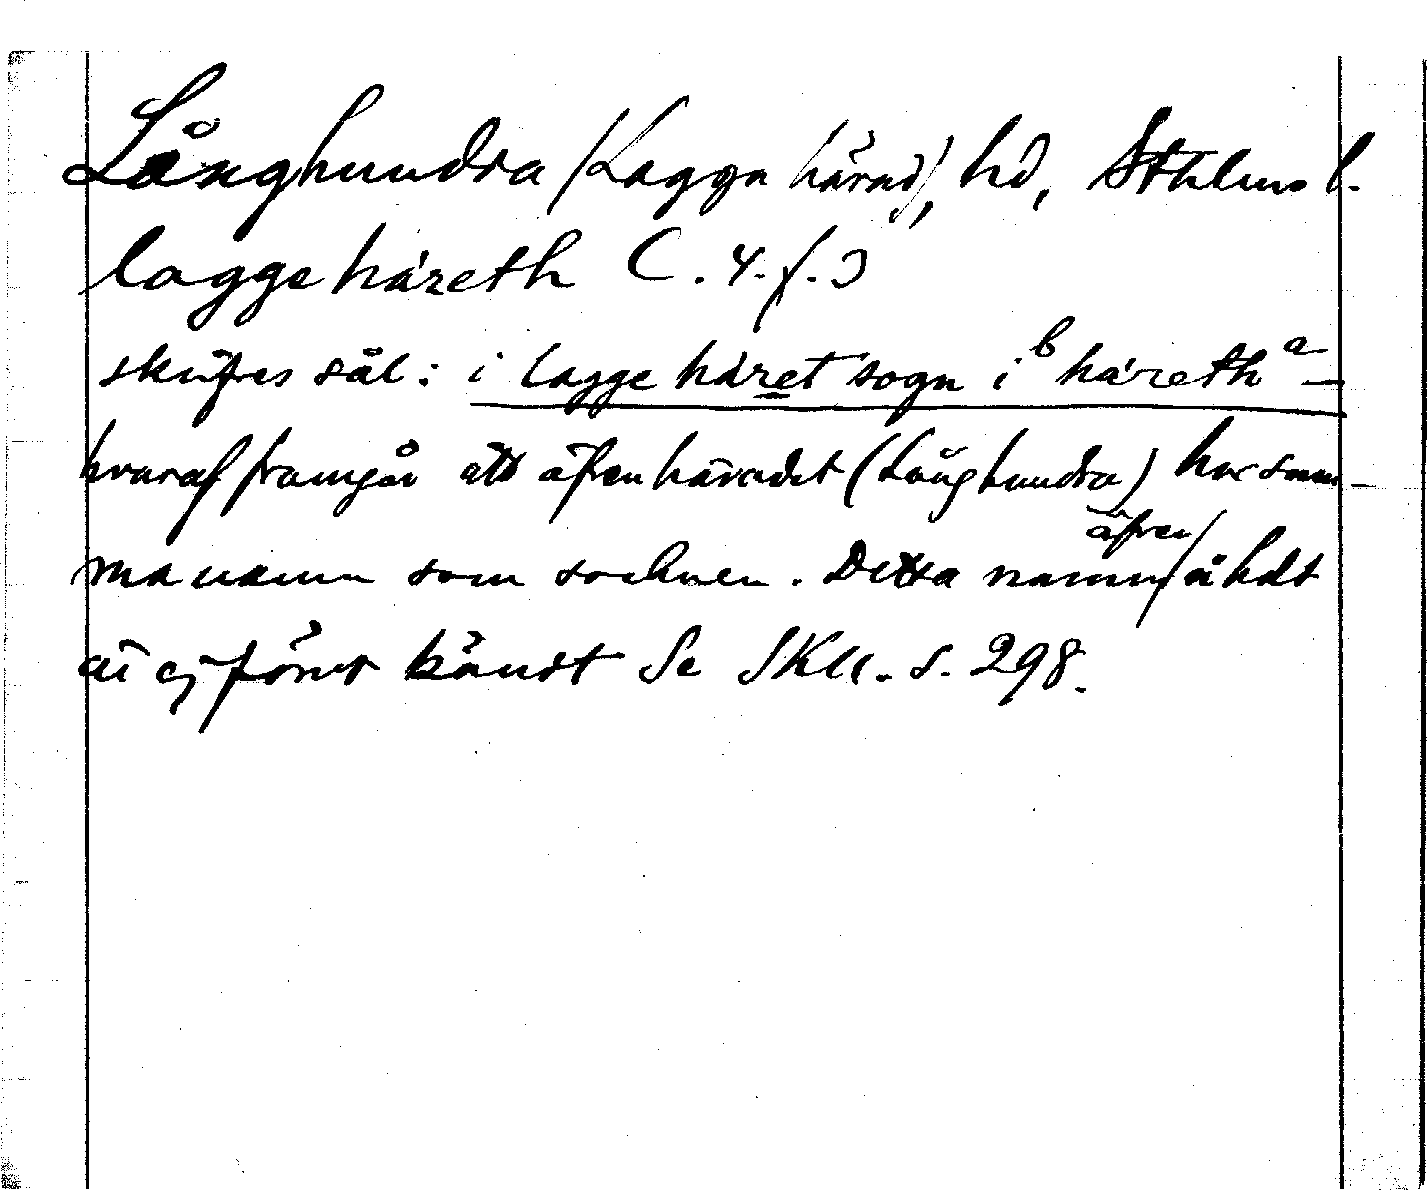 Långhundra (Lagga härad), hd, Sthlms l.
laggeháreth C. 4. f. 3
skrifves sål: i lagge háret sogn i b háreth a –
hvaraf framgår att äfven häradet (Långhundra) har sam-
ma namn som socknen. Detta namn äfven å hdt
är ej förut kändt Se SKU. s. 298.